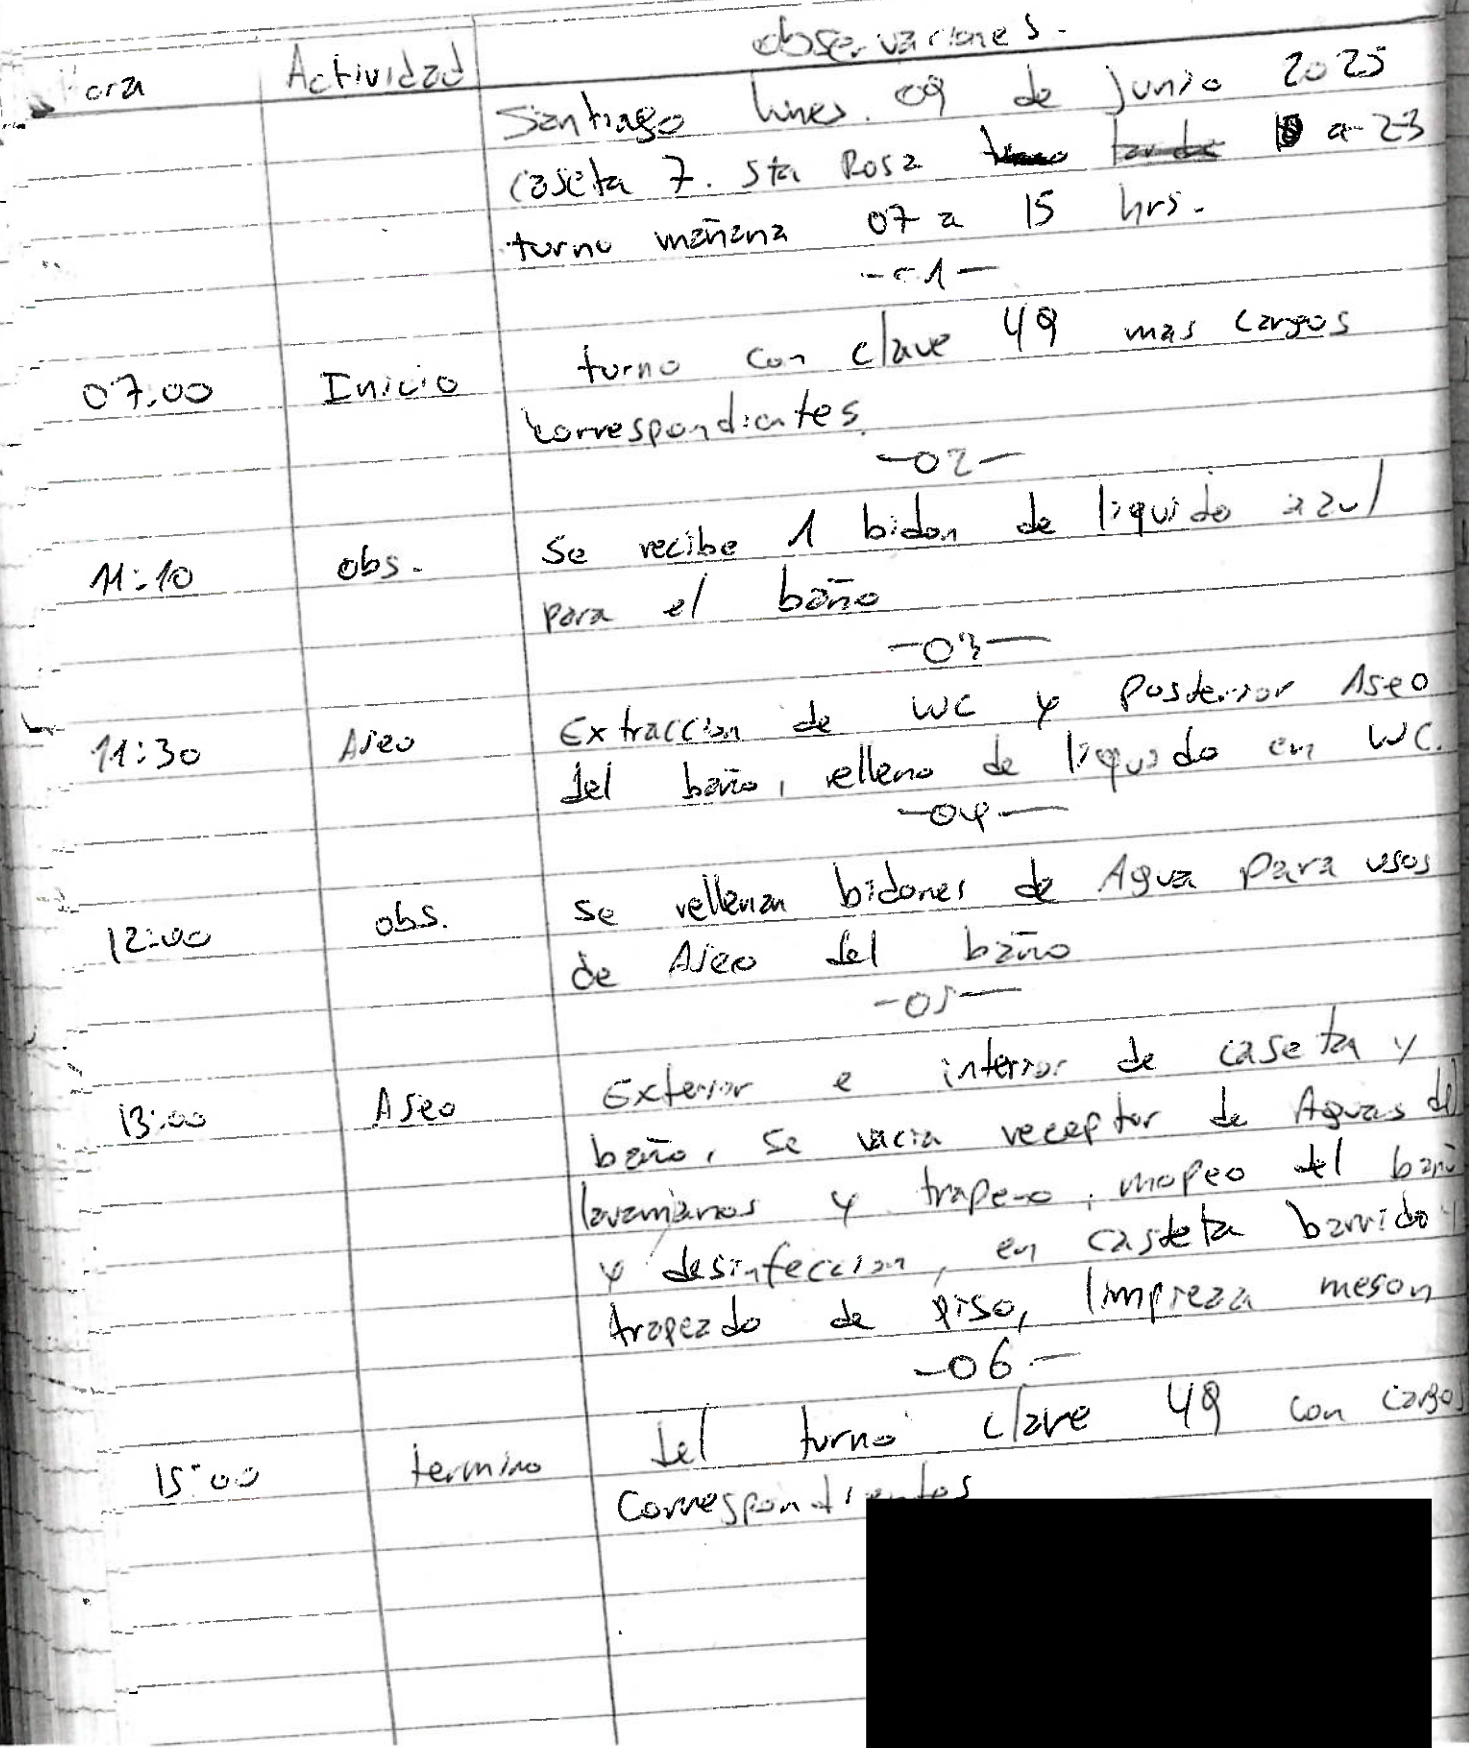 Hora Actividad observaciones.
Santiago lunes. 09 de junio 2025
caseta 7. Sta Rosa turno tarde a 23
turno mañana 07 a 15 hrs.
-01-
07:00 Inicio turno con clave 49 mas cargos
correspondientes.
-02-
11:10 obs. Se recibe 1 bidon de liquido azul
para el baño
-03-
11:30 Aseo Extraccion de WC y Posterior Aseo
del baño, relleno de liquido en WC.
-04-
12:00 obs. Se rellenan bidones de Agua Para usos
de Aseo del baño
-05-
13:00 Aseo Exterior e interior de caseta y
baño, se vacia receptor de Aguas del
lavamanos y trapero, mopeo del baño
y desinfeccion, en casteta barrido y
trapeado de piso, limpieza meson
-06-
15:00 termino del turno clave 49 con cargos
Correspondientes